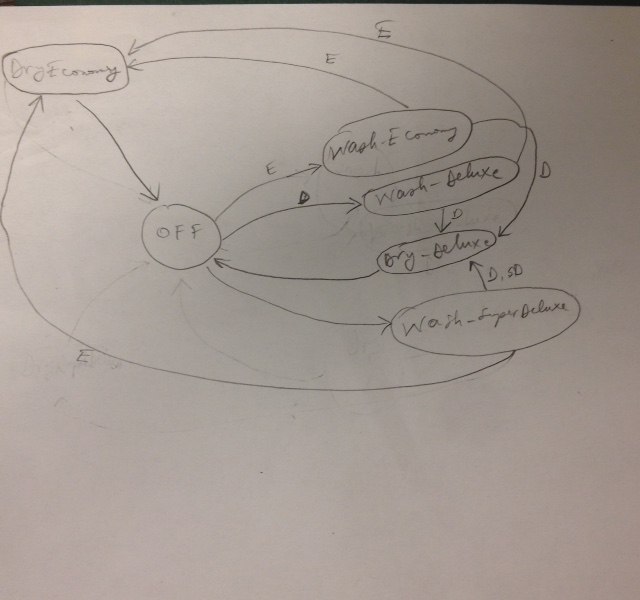 E
DryEconomy
E
Wash-Economy
E
D
Wash-Deluxe
D
D
OFF
Dry-Deluxe
D, SD
Wash-SuperDeluxe
E